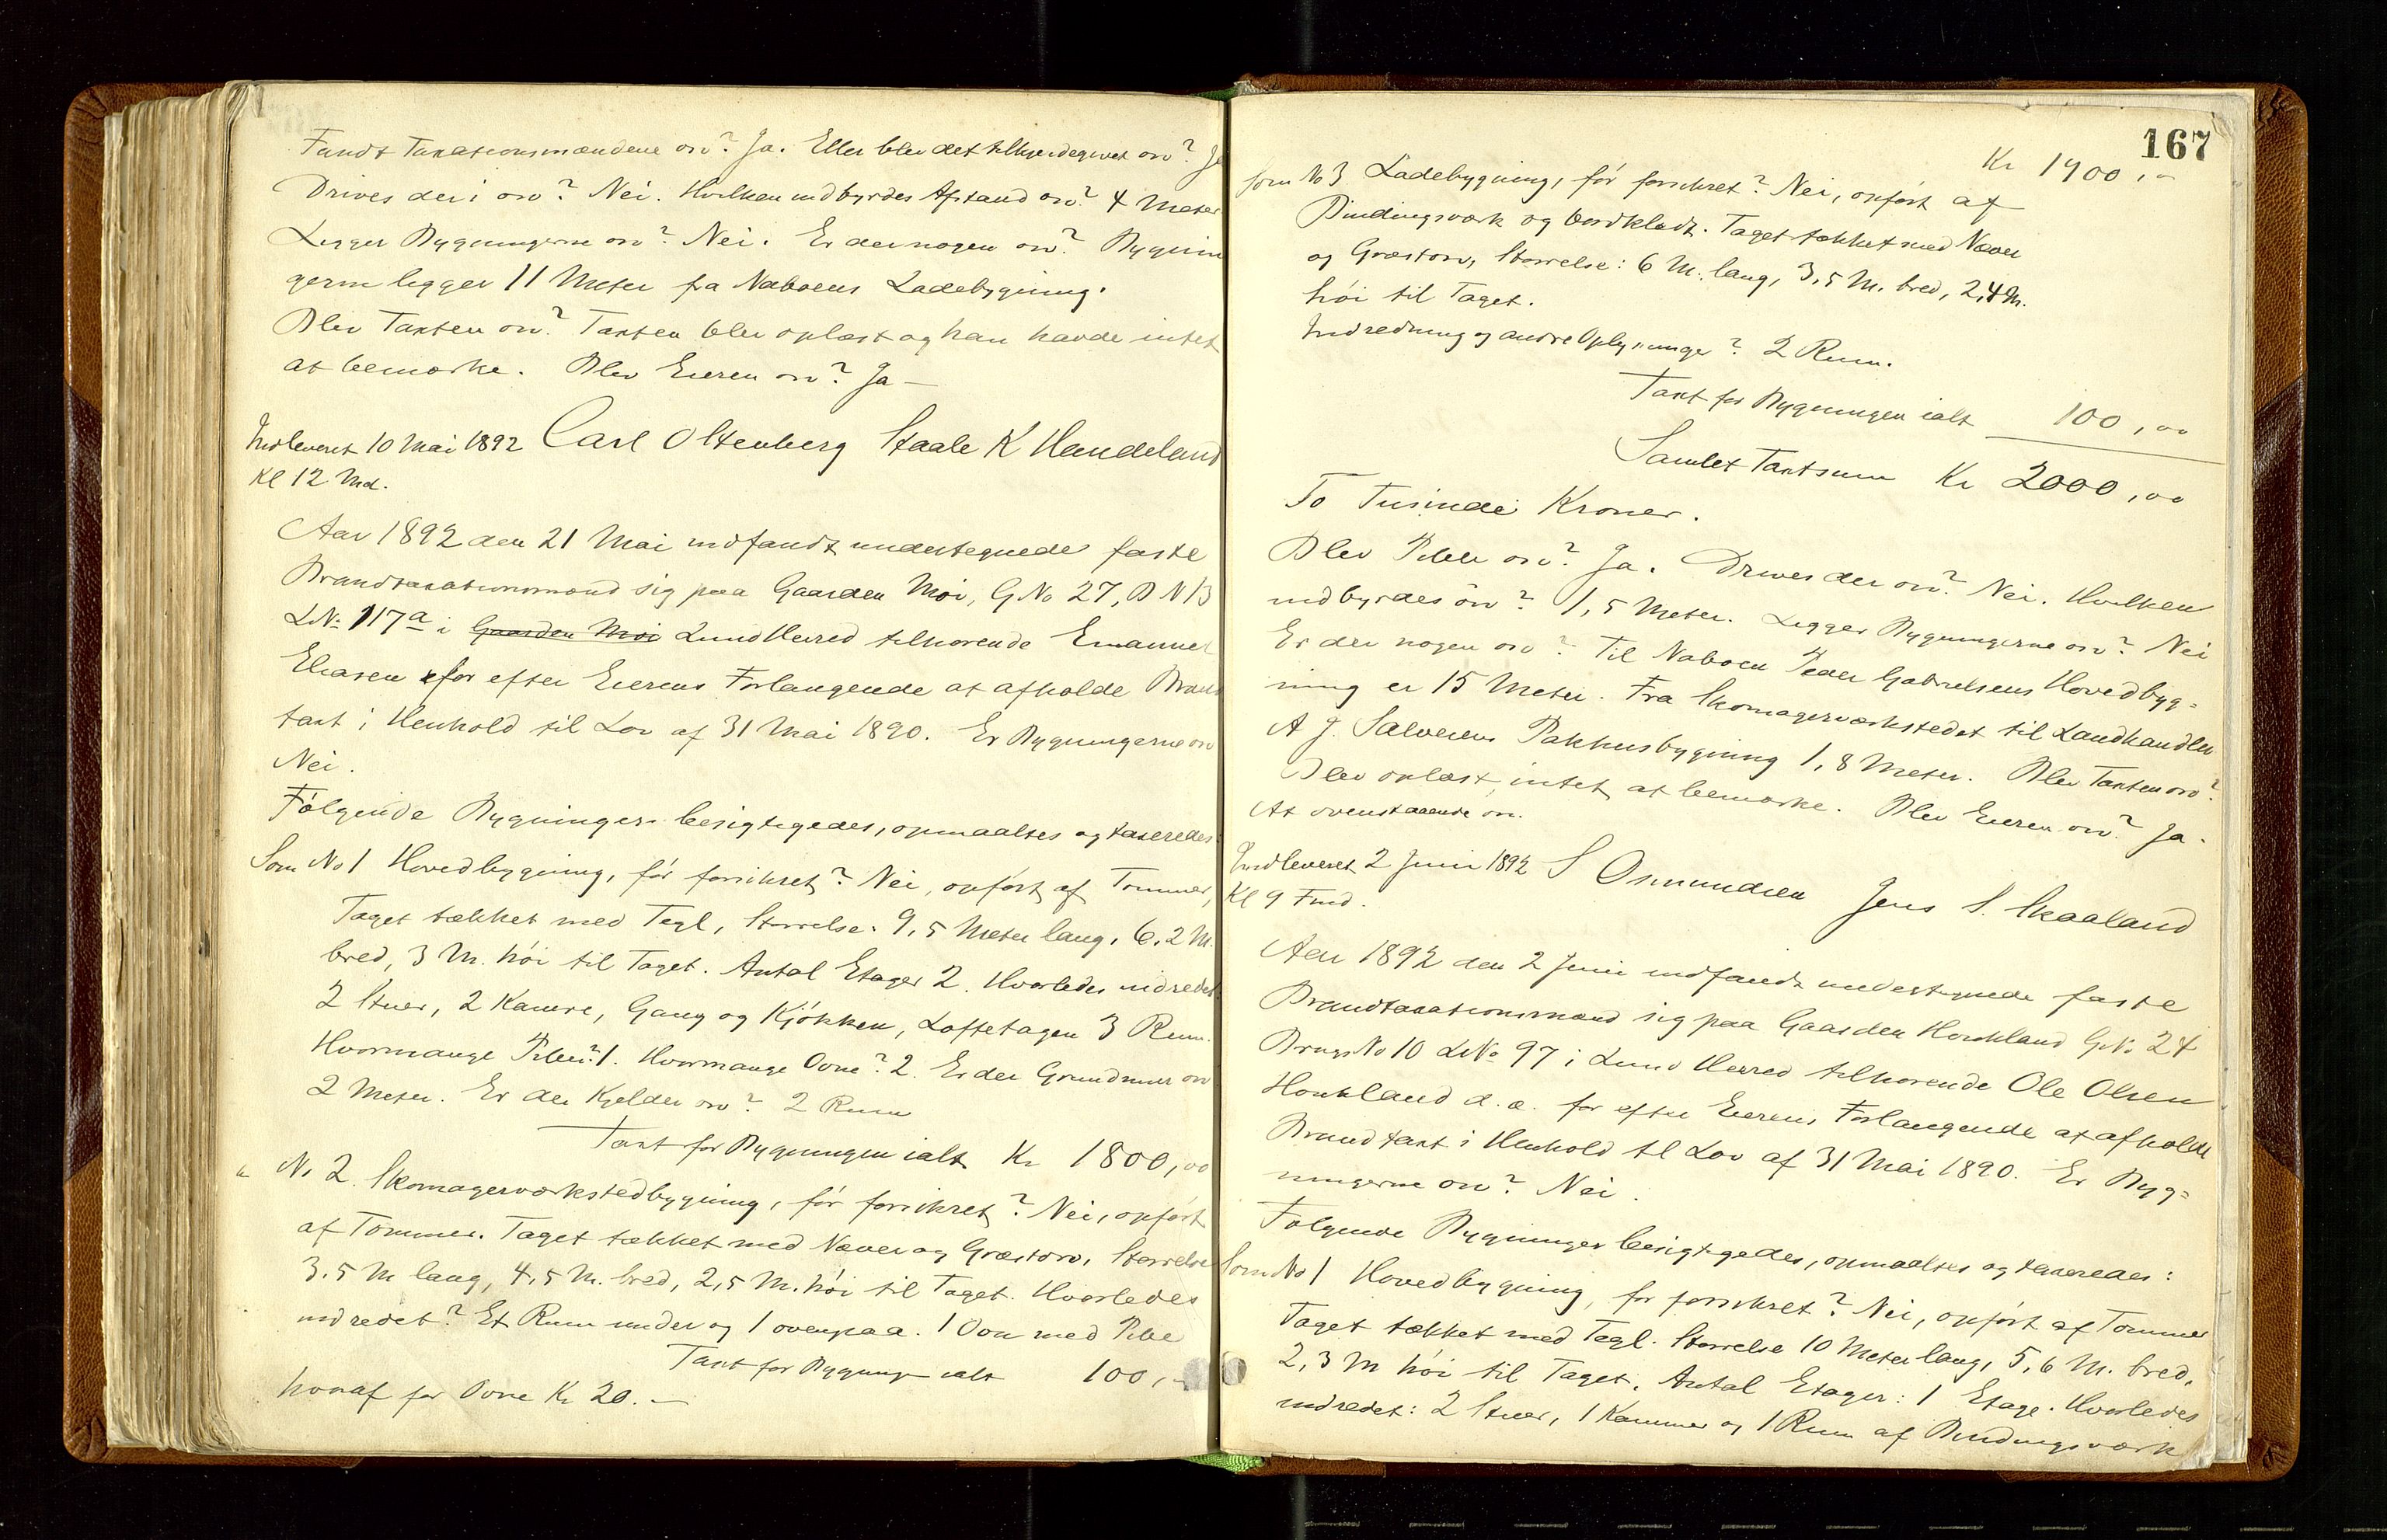 Fandt Taxationsmændene osv? Ja. Eller blev det tilkjendegivet osv? Ja
Drives der i osv? Nei. Hvilken indbyrdes Afstand osv? 4 Meter
Ligger Bygningerne osv? Nei. Er der nogen osv? Bygnin
gerne ligger 11 Meter fra Naboens Ladebygning.
Blev Taxten osv? Taxten blev oplæst og han havde intet
at bemærke. Blev Eieren osv? Ja —
Indleveret 10 Mai 1892 Carl Oltenberg Staale K Handeland
Kl 12 Md.
Aar 1892 den 21 Mai indfandt undertegnede faste
Brandtaxationsmænd sig paa Gaarden Moi, G No 27, B N 13
L.No 117a i Gaarden Moi Lund Herred tilhørende Emanuel
Eliasen for efter Eierens Forlangende at afholde Brand
taxt i Henhold til Lov af 31 Mai 1890. Er Bygningerne osv
Nei.
Følgende Bygninger besigtigedes, opmaaltes og taxeredes:
Som No 1 Hovedbygning, før forsikret? Nei, opført af Tømmer,
Taget tækket med Tegl, Størrelse: 9,5 Meter lang, 6,2 M.
bred, 3 M. høi til Taget. Antal Etager 2. Hvorledes indredet:
2 Stuer, 2 Kamre, Gang og Kjøkken, Loftetagen 3 Rum.
Hvormange Piber? 1. Hvormange Ovne? 2. Er der Grundmur osv
2 Meter. Er der Kjelder osv? 2 Rum
Taxt for Bygningen ialt Kr 1800,00
" No 2. Skomagerværkstedbygning, før forsikret? Nei, opført
af Tømmer. Taget tækket med Næver og Græstorv, Størrelse
3,5 M lang, 4,5 M. bred, 2,5 M. høi til Taget. Hvorledes
indredet? Et Rum under og 1 ovenpaa. 1 Ovn med Pibe
Taxt for Bygning ialt 100,-
hvoraf for Ovne Kr 20.—
167
Kr 1900,-
som No 3 Ladebygning, før forsikret? Nei, opført af
Bindingsværk og bordklædt. Taget tækket med Næver
og Græstorv, Størrelse: 6 M. lang, 3,5 M. bred, 2,4 M.
høi til Taget.
Indredning og andre Oplysninger? 2 Rum.
Taxt for Bygningen ialt 100,00
Samlet Taxtsum Kr 2000,00
To Tusinde Kroner.
Blev Piber osv? Ja. Drives der osv? Nei. Hvilken
indbyrdes osv? 1,5 Meter. Ligger Bygningerne osv? Nei
Er der nogen osv? Til Naboen Peder Gabrielsens Hovedbyg-
ning er 15 Meter. Fra Skomagerværkstedet til Landhandler
A J. Salvesens Pakhusbygning 1,8 Meter. Blev Taxten osv?
Blev oplæst, intet at bemærke. Blev Eieren osv? Ja.
At ovenstaaende osv.
Indleveret 2 Juni 1892 S Osmundsen Jens S. Skaaland
Kl 9 Fmd.
Aar 1892 den 2 Juni indfandt undertegnede faste
Brandtaxationsmænd sig paa Gaarden Hovkland G.No 24
Brugs No 10 L.No 97 i Lund Herred tilhørende Ole Olsen
Hovkland d. æ. for efter Eierens Forlangende at afholde
Brandtaxt i Henhold til Lov af 31 Mai 1890. Er Byg-
ningerne osv? Nei.
Følgende Bygninger besigtigedes, opmaaltes og taxeredes:
Som No 1 Hovedbygning, før forsikret? Nei, opført af Tømmer
Taget tækket med Tegl. Størrelse 10 Meter lang, 5,6 M. bred,
2,3 M høi til Taget. Antal Etager: 1 Etage. Hvorledes
indredet: 2 Stuer, 1 Kammer og 1 Rum af Bindingsværk